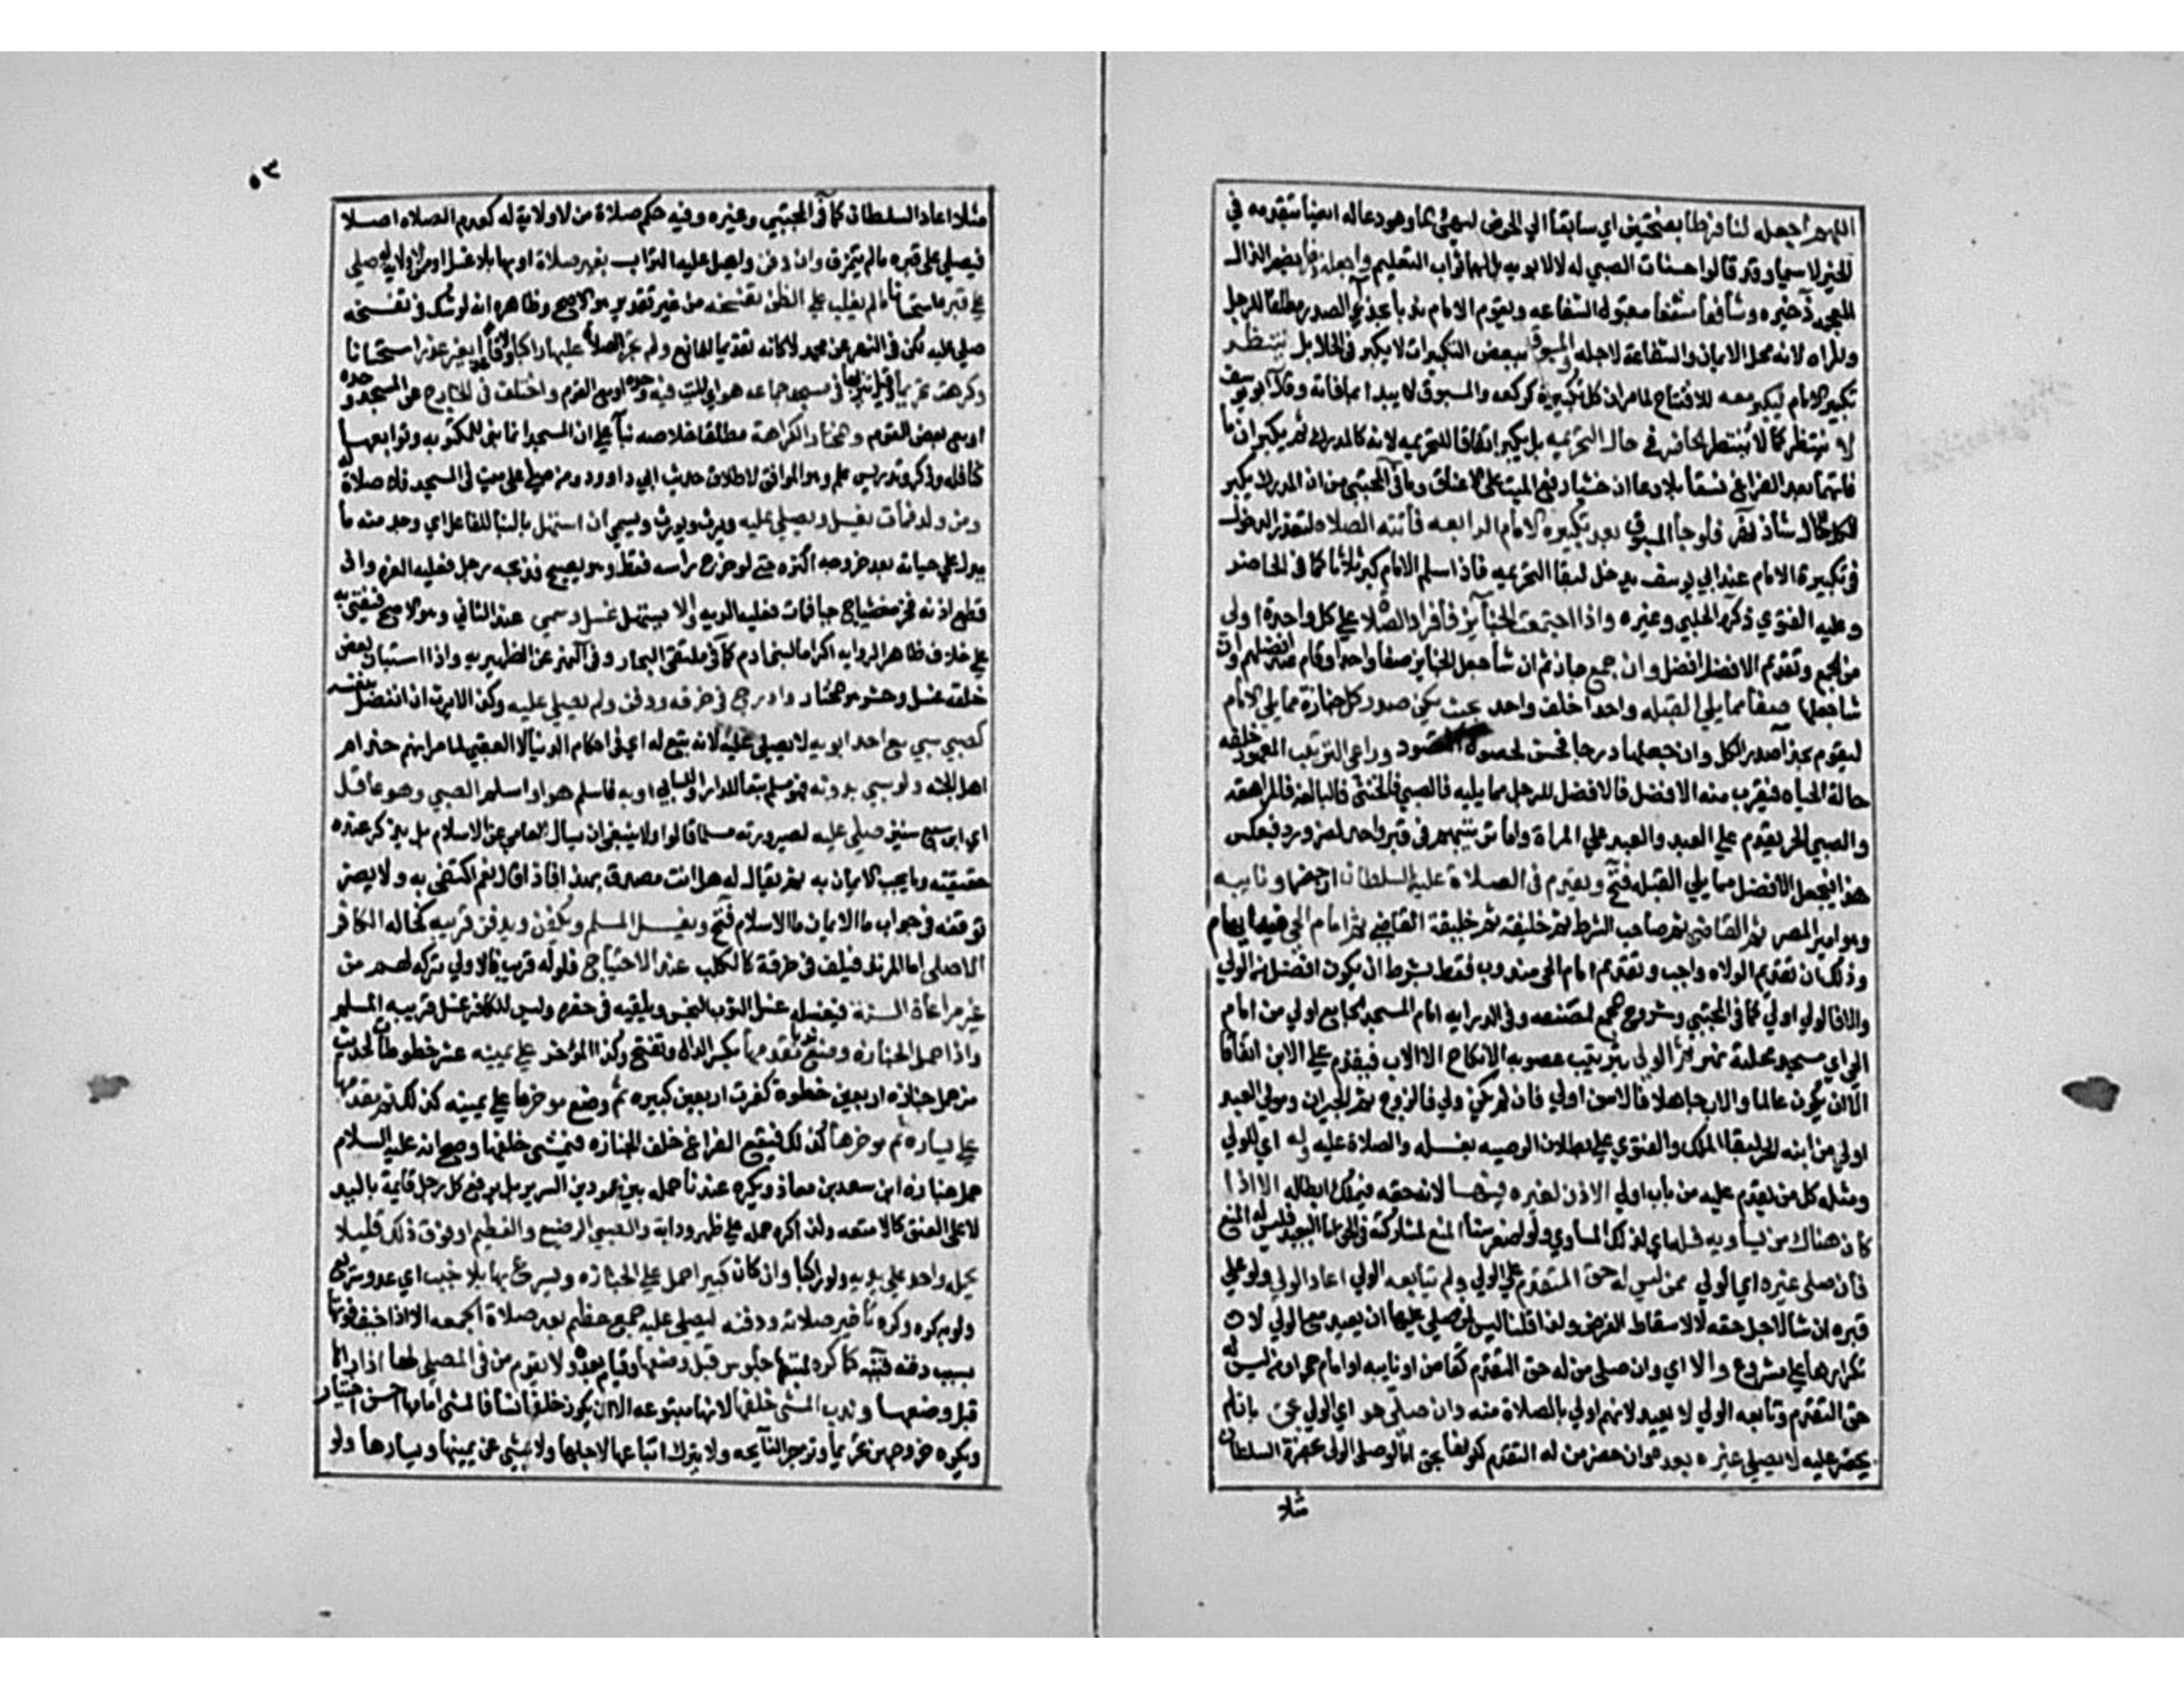 اللهم اجعله لنا فرطا بفتحتين اي سابقا الي الحوض ليهيئ الما وهو دعا له ايضا بتقدمه في
الخير لا سيما وقد قالوا حسنات الصبي له لا لابويه بل لهما ثواب التعليم واجعله ذخرا بضم الذال
المعجمة ذخيره وشافعا مشفعا مقبول الشفاعه ويقوم الامام ندبا بحذي الصدر مطلقا للرجل
والمراه لانه محل الايمان والشفاعة لاجله والمسبوق ببعض التكبيرات لا يكبر في الحال بل ينتظر
تكبير الامام ليكبر معه للافتتاح لما مر ان كل تكبيرة كركعه والمسبوق لا يبدا بما فاته وقال ابو يوسف
لا ينتظر كما لا ينتظر الحاضر في حال التحريمه بل يكبر اتفاقا للتحريمه لانه كالمدرك ثم يكبران ما
فاتهما بعد الفراغ نسقا بلا دعا ان خشيا رفع الميت علي الاعناق وما في المجتبي من ان المدرك يكبر
الكل للحال شاذ نهر فلو جا المسبوق بعد تكبيرة الامام الرابعه فاتته الصلاه لتعذر الدخول
في تكبيرة الامام عند ابي يوسف يدخل لبقا التحريمه فاذا سلم الامام كبر ثلاثا كما في الحاضر
وعليه الفتوي ذكره الحلبي وغيره واذا اجتمعت الجنايز فافراد الصلاة علي كل واحدة اولي
من الجمع وتقديم الافضل افضل وان جمع جاز ثم ان شا جعل الجنايز صفا واحدا وقام عند افضلهم وان
شا جعلها صفا مما يلي القبله واحدا خلف واحد بحيث يكون صدر كل جنازة مما يلي الامام
ليقوم بحذا صدر الكل وان جعلها درجا فحسن لحصول المقصود وراعي الترتيب المعهود خلفه
حالة الحياه فيقرب منه الافضل فالافضل للرجل مما يليه فالصبي فالخنثي فالبالغه فالمراهقه
والصبي الحر يقدم علي العبد والعبد علي المراة واما ترتيبهم في قبر واحد لضرورة فبعكس
هذا فيجعل الافضل مما يلي القبله فتح ويقدم في الصلاة عليه السلطان ان حضر او نايبه
وهو امير المصر ثم القاضي ثم صاحب الشرط ثم خليفته ثم خليفة القاضي ثم امام الحي فيه ايهام
وذلك ان تقديم الولاه واجب وتقديم امام الحي مندوب فقط بشرط ان يكون افضل من الولي
والا فالولي اولي كما في المجتبي وشروح المجمع لمصنفه وفي الدرايه امام المسجد الجامع اولي من امام
الحي اي مسجد محلته نهر ثم الولي بترتيب عصوبه الانكاح الا الاب فيقدم علي الابن اتفاقا
الا ان يكون عالما والاب جاهلا فالابن اولي فان لم يكن ولي فالزوج ثم الجيران ومولي العبد
اولي من ابنه الحر لبقا الملك والفتوي علي بطلان الوصيه بغسله والصلاة عليه وله اي للولي
ومثله كل من تقدم عليه من باب اولي الاذن لغيره فيها لانه حقه فيملك ابطاله الا اذا
كان هناك من يساويه فله اي لذلك المساوي ولو اصغر سنا المنع لمشاركته في الحق اما البعيد فليس له المنع
فان صلي غيره اي الولي ممن ليس له حق المتقدم علي الولي ولم يتابعه الولي اعاد الولي ولو علي
قبره ان شا لاجل حقه لا لاسقاط الفرض ولذا قلنا ليس لمن صلي عليها ان يعيد مع الولي لان
تكرارها غير مشروع والا اي وان صلي من له حق التقدم كقاض او نايبه او امام حي او من ليس له
حق التقدم وتابعه الولي لا يعيد لانهم اولي بالصلاة منه وان صلي هو اي الولي بحق بان لم
يحضر عليه لا يصلي غيره بعده وان حضر من له التقدم لكونها بحق اما لو صلي الولي بحضرة السلطان
مثلا
٥٣
مثلا اعاد السلطان كما في المجتبي وغيره وفيه حكم صلاة من لا ولاية له كعدم الصلاه اصلا
فيصلي علي قبره ما لم يتمزق وان دفن واهيل عليه التراب بغير صلاة او بها بلا غسل او من لا ولاية له صلي
علي قبره استحسانا ما لم يغلب علي الظن تفسخه من غير تقدير هو الاصح وظاهره انه لو شك في تفسخه
صلي عليه لكن في النهر عن محمد لا كانه تقديما للمانع ولم تجز الصلاة عليها راكبا ولا قاعدا بغير عذر استحسانا
وكرهت تحريما وقيل تنزيها في مسجد جماعه هو اي الميت فيه وحده او مع القوم واختلف في الخارج عن المسجد وحده
او مع بعض القوم والمختار الكراهة مطلقا خلاصه بنا علي ان المسجد انما بني للمكتوبه وتوابعها
كنافله وذكر وتدريس علم وهو الموافق لاطلاق حديث ابي داوود من صلي علي ميت في المسجد فلا صلاة له
ومن ولد فمات يغسل ويصلي عليه ويرث ويورث ويسمي ان استهل بالبنا للفاعل اي وجد منه ما
يدل علي حياته بعد خروجه اكثره حتي لو خرج راسه فقط وهو يصيح فذبحه رجل فعليه الغره وان
قطع اذنه فخرج حيا فمات فعليه الديه والا يستهل غسل وسمي عند الثاني وهو الاصح فيفتي به
علي خلاف ظاهر الروايه اكراما لبني ادم كما في ملتقي البحار وفي النهر عن الظهيريه واذا استبان بعض
خلقه غسل وحشر هو المختار وادرج في خرقه ودفن ولم يصلي عليه وكذا لا يرث ان انفصل بنفسه
كصبي سبي مع احد ابويه لا يصلي عليه لانه تبع له اي في احكام الدنيا لا العقبي لما مر انهم خدام
اهل الجنه ولو سبي بدونه فهو مسلم تبعا للدار او للسابي او به فاسلم هو او اسلم الصبي وهو عاقل
اي ابن سبع سنين صلي عليه لصيرورته مسلما قالوا ولا ينبغي ان يسال العامي عن الاسلام بل يذكر عنده
حقيقته وما يجب الايمان به ثم يقال له هل انت مصدق بهذا فاذا قال نعم اكتفي به ولا يضر
توقفه في جواب ما الايمان ما الاسلام فتح ويغسل المسلم ويكفن ويدفن قريبه كخاله الكافر
الاصلي اما المرتد فيلقي في حفرة كالكلب عند الاحتياج فلو له قريب فالاولي تركه لهم من
غير مراعاة السنة فيغسله غسل الثوب النجس ويلقيه في حفره وليس للكافر غسل قريبه المسلم
واذا حمل الجنازه وضع ندبا مقدمها بكسر الدال وتفتح وكذا المؤخر علي يمينه عشر خطوات لحديث
من حمل جنازه اربعين خطوة كفرت اربعين كبيره ثم وضع موخرها علي يمينه كذلك ثم مقدمها
علي يساره ثم موخرها كذلك فيقع الفراغ خلف الجنازه فيمشي خلفها وصح انه عليه السلام
حمل جنازة ابن سعد بن معاذ ويكره عندنا حمله بين عمودين السرير بل يرفع كل رجل قايمة باليد
لا علي العنق كالامتعه ولذا كره حمله علي ظهر ودابة والصبي الرضيع والفطيم او فوق ذلك قليلا
يحمله واحد علي يديه ولو راكبا وان كان كبيرا حمل علي الجنازه ويسرع بها بلا خبب اي عدو سريع
ولو به كره وكره تاخير صلاته ودفنه ليصلي عليه جمع عظيم بعد صلاة الجمعه الا اذا خيف فوتها
بسبب دفنه قنيه كما كره لمتبعها جلوس قبل وضعها وقيام بعده ولا يقوم من في المصلي لها اذا راها
قبل وضعها وندب المشي خلفها لانها متبوعه الا ان يكون خلفها نسا فالمشي امامها احسن اختيار
ويكره خروجهن تحريما وتزجر النايحه ولا يترك اتباعها لاجلها ولا يمشي عن يمينها ويسارها ولو